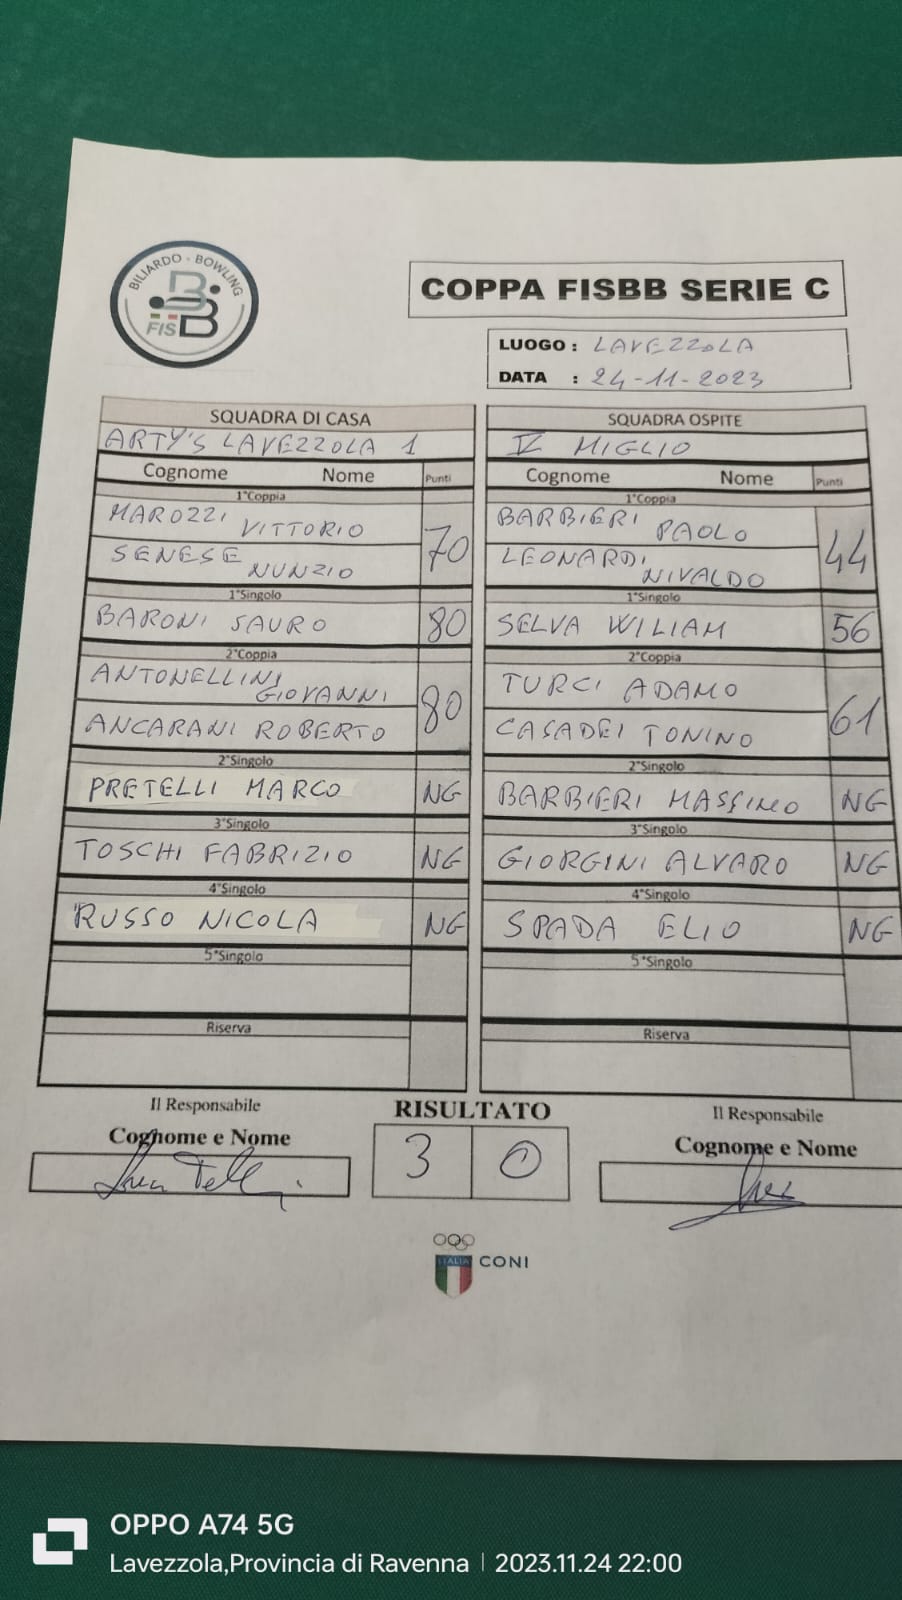 BILIARDO - BOWLING
FISBB
COPPA FISBB SERIE C
LUOGO : LAVEZZOLA
DATA : 24-11-2023
SQUADRA DI CASA
ARTY'S LAVEZZOLA 1
Cognome Nome Punti
1°Coppia
MAROZZI VITTORIO
SENESE NUNZIO
70
1°Singolo
BARONI SAURO 80
2°Coppia
ANTONELLINI GIOVANNI
ANCARANI ROBERTO
80
2°Singolo
PRETELLI MARCO NG
3°Singolo
TOSCHI FABRIZIO NG
4°Singolo
RUSSO NICOLA NG
5°Singolo
Riserva
SQUADRA OSPITE
V MIGLIO
Cognome Nome Punti
1°Coppia
BARBIERI PAOLO
LEONARDI NIVALDO
44
1°Singolo
SELVA WILIAM 56
2°Coppia
TURCI ADAMO
CASADEI TONINO
61
2°Singolo
BARBIERI MASSIMO NG
3°Singolo
GIORGINI ALVARO NG
4°Singolo
SPADA ELIO NG
5°Singolo
Riserva
Il Responsabile
Cognome e Nome
RISULTATO
3 0
Il Responsabile
Cognome e Nome
ITALIA
CONI
OPPO A74 5G
Lavezzola,Provincia di Ravenna | 2023.11.24 22:00